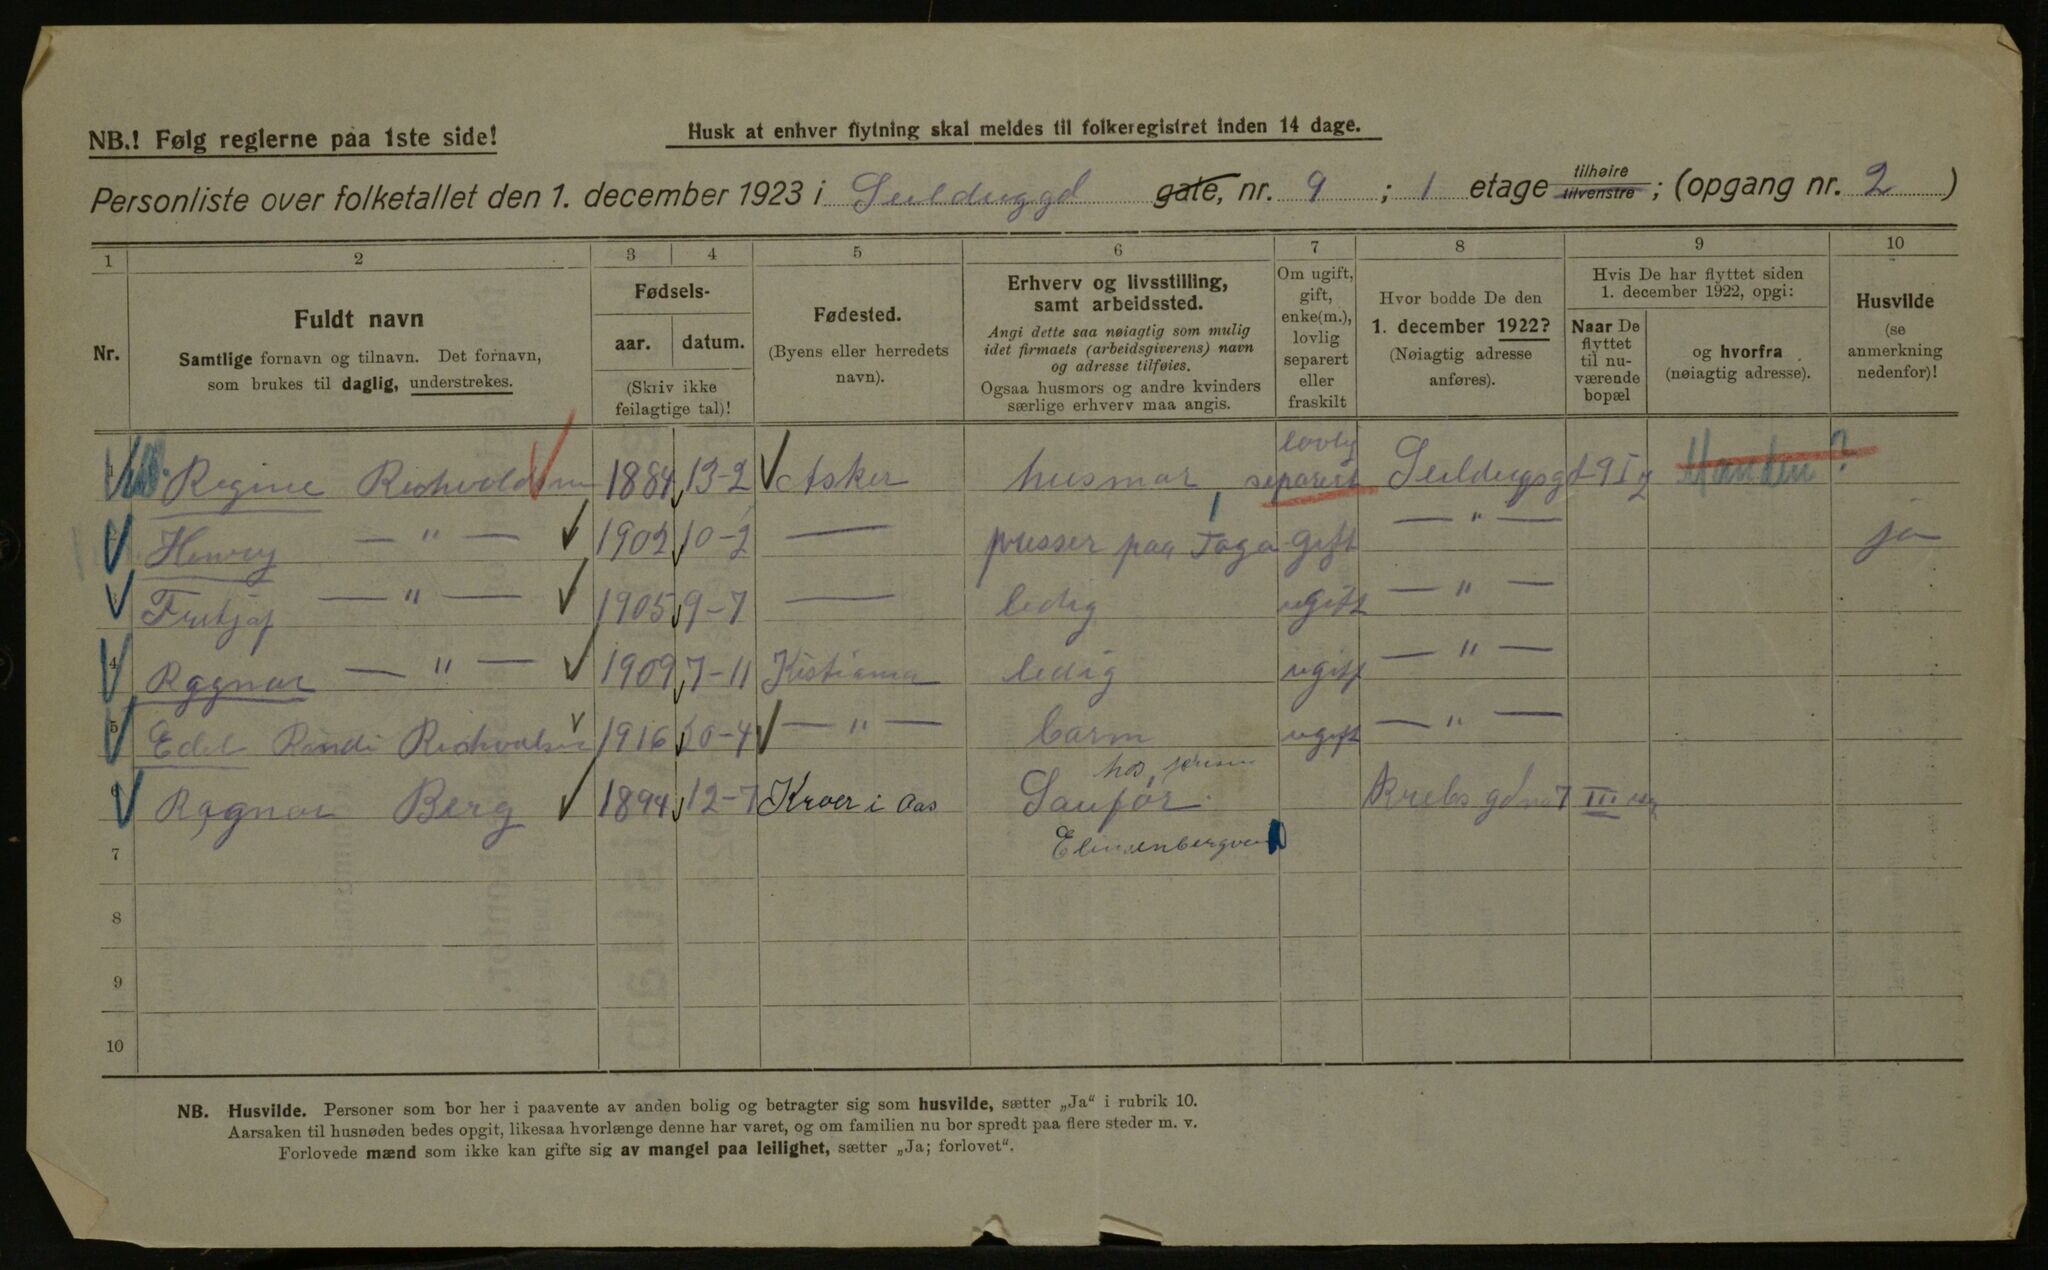 NB.! Følg reglerne paa 1ste side!
Husk at enhver flytning skal meldes til folkeregistret inden 14 dage.
Personliste over folketallet den 1. december 1923 i Seilduggd gate, nr. 9 ; 1 etage tilhøire tilvenstre ; (opgang nr. 2 )
1 2 3 4 5 6 7 8 9 10
Nr.
Fuldt navn
Samtlige fornavn og tilnavn. Det fornavn,
som brukes til daglig, understrekes.
Fødsels-
aar. datum.
(Skriv ikke
feilagtige tal)!
Fødested.
(Byens eller herredets
navn).
Erhverv og livsstilling,
samt arbeidssted.
Angi dette saa nøiagtig som mulig
idet firmaets (arbeidsgiverens) navn
og adresse tilføies.
Ogsaa husmors og andre kvinders
særlige erhverv maa angis.
Om ugift,
gift,
enke(m.),
lovlig
separert
eller
fraskilt
Hvor bodde De den
1. december 1922?
(Nøiagtig adresse
anføres).
Hvis De har flyttet siden
1. december 1922, opgi:
Naar De
flyttet
til nu-
værende
bopæl
og hvorfra
(nøiagtig adresse).
Husvilde
(se
anmerkning
nedenfor)!
Regine 1884 13-2 Asker husmor lovlig separert Manden?
2 Henry — " — 1902 10-2 — presser paa gift — " — ja
3 — " — 1905 9-7 — ledig ugift — " —
4 Ragnar — " — 1909 7-11 ledig ugift — " —
5 Edel Randi 1916 20-4 — " — barn ugift — " —
6 Ragnar Berg 1894 12-7 Kroer i Aas hos
7
8
9
10
NB. Husvilde. Personer som bor her i paavente av anden bolig og betragter sig som husvilde, sætter „Ja“ i rubrik 10.
Aarsaken til husnøden bedes opgit, likesaa hvorlænge denne har varet, og om familien nu bor spredt paa flere steder m. v.
Forlovede mænd som ikke kan gifte sig av mangel paa leilighet, sætter „Ja; forlovet“.